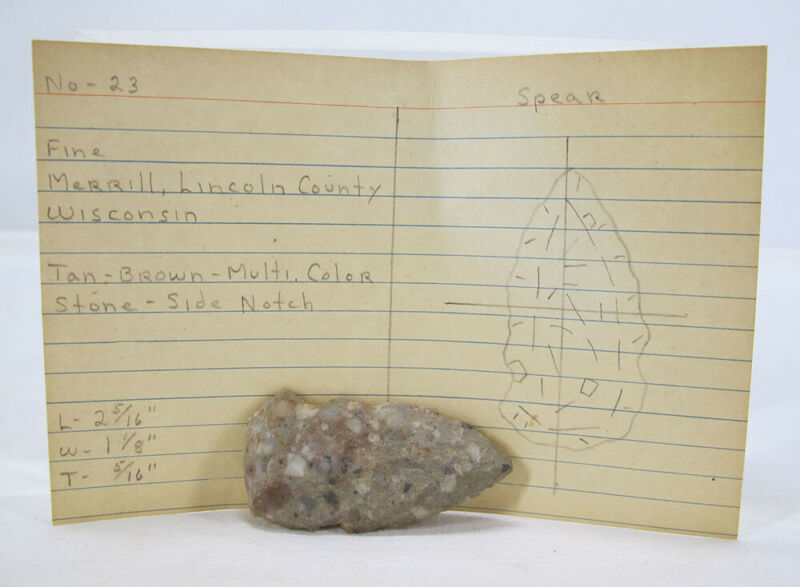 No - 23
Spear
Fine
Merrill, Lincoln County
Wisconsin
Tan - Brown - Multi. Color
Stone - Side Notch
L - 2 5/16"
W - 1 1/8"
T - 5/16"